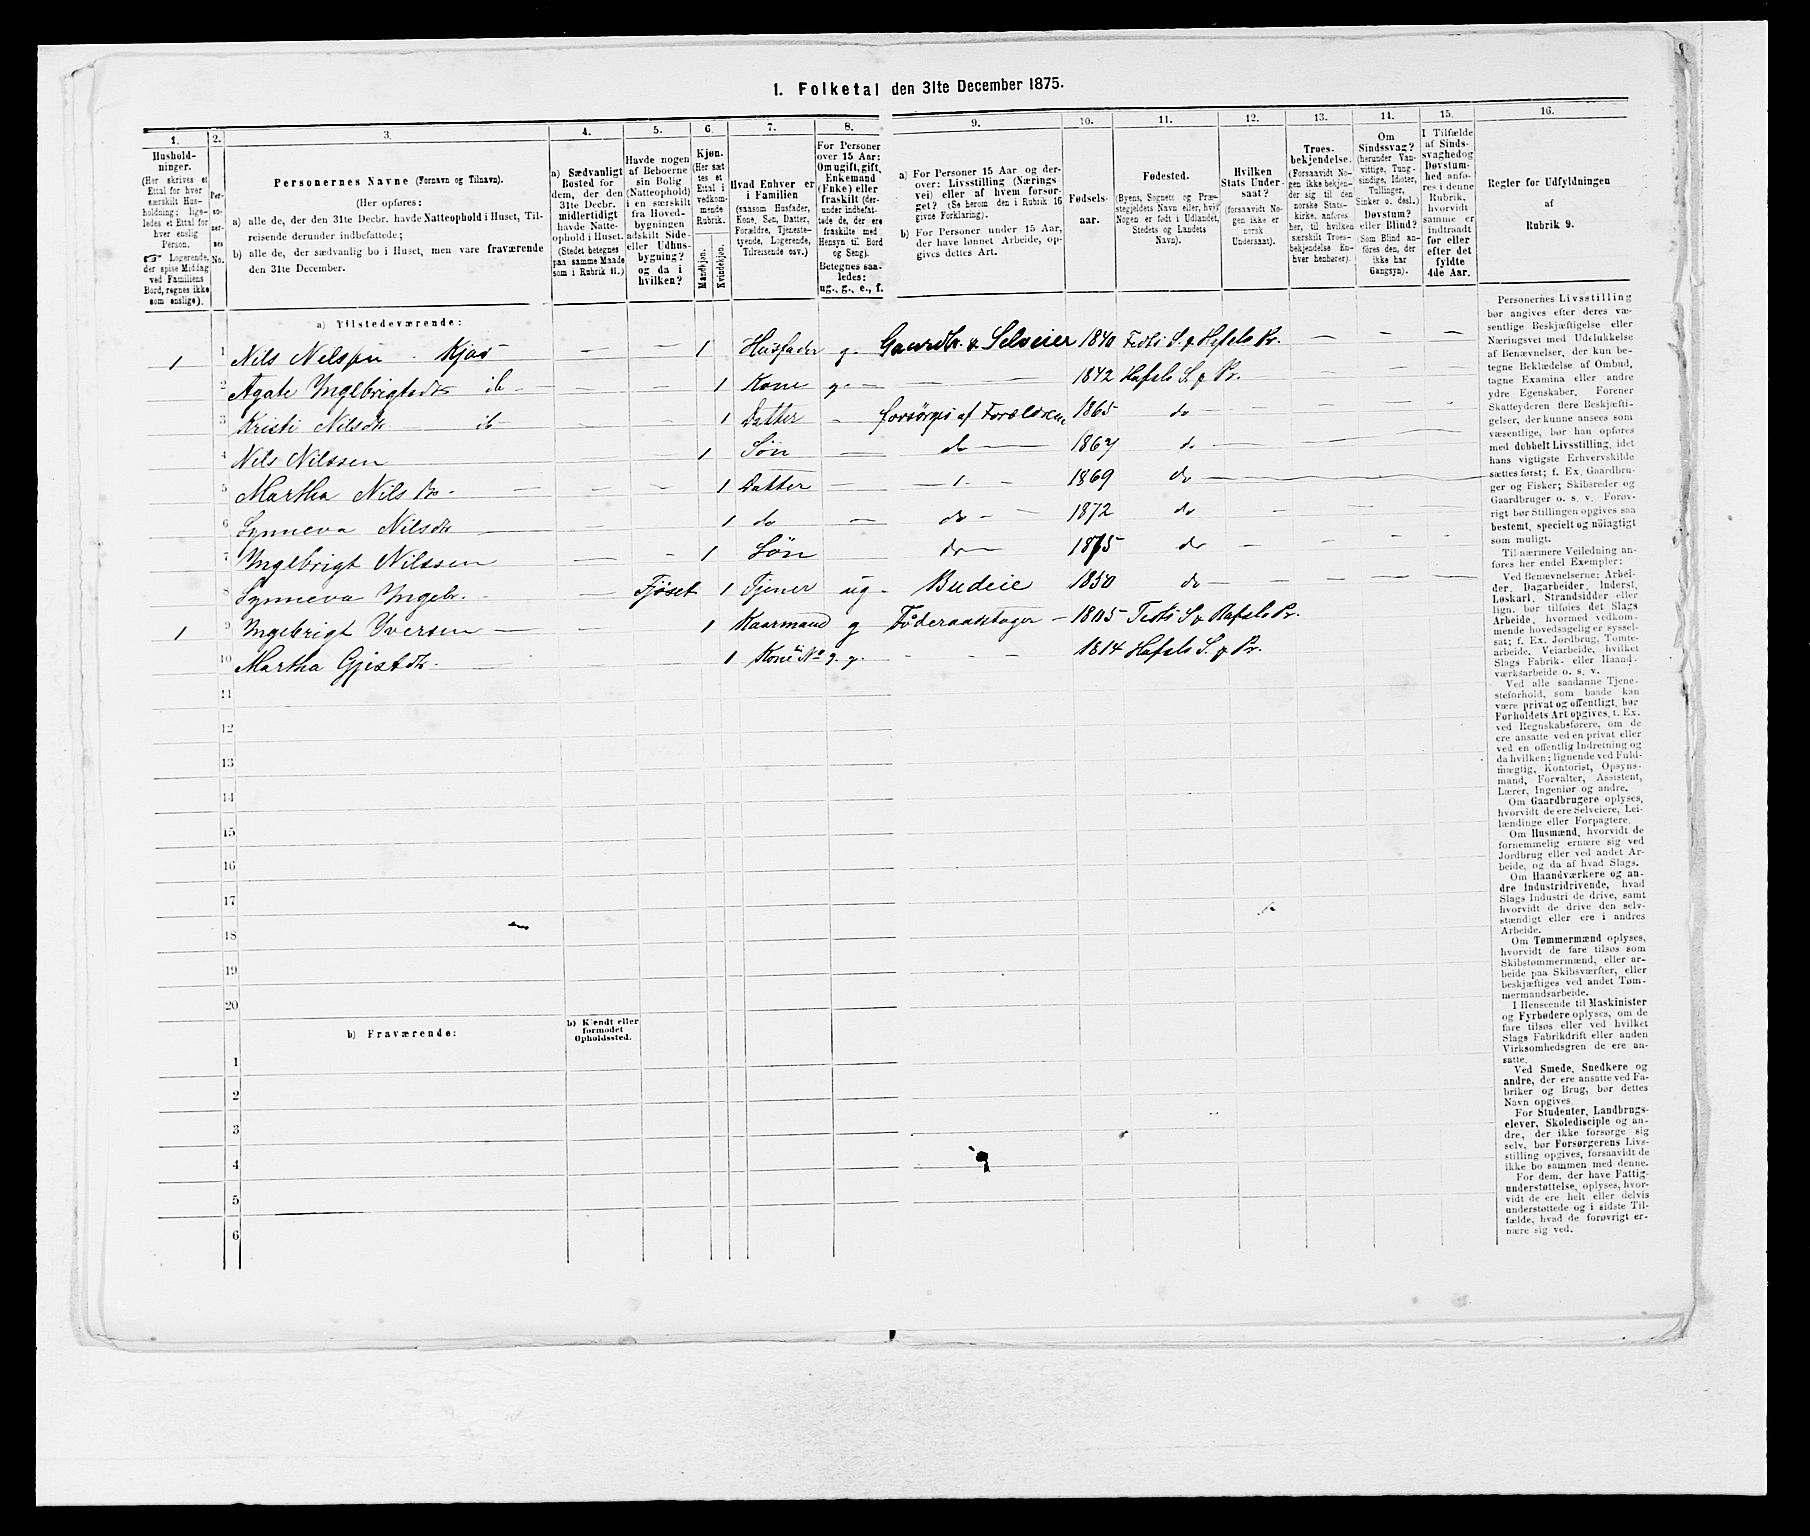 1. Folketal den 31te December 1875.
1. 2. 3. 4. 5. 6. 7. 8. 9. 10. 11. 12. 13. 14. 15. 16.
Hushold-
ninger.
(Her skrives et
Ettal for hver
særskilt Hus-
holdning; lige-
ledes et Ettal for
hver enslig
Person.
☞ Logerende,
der spise Middag
ved Familiens
Bord, regnes ikke
som enslige).
Per-
so-
ner-
nes
No.
Personernes Navne (Fornavn og Tilnavn).
(Her opføres:
a) alle de, der den 31te Decbr. havde Natteophold i Huset, Til-
reisende derunder indbefattede;
b) alle de, der sædvanlig bo i Huset, men vare fraværende
den 31te December.
a) Sædvanligt
Bosted for
dem, der den
31te Decbr.
midlertidigt
havde Natte-
ophold i Huset.
(Stedet betegnes
paa samme Maade
som i Rubrik 11.)
Havde nogen
af Beboerne
sin Bolig
(Natteophold)
i en særskilt
fra Hoved-
bygningen
adskilt Side-
eller Udhus-
bygning?
og da i
hvilken?
Kjøn.
(Her sæt-
tes et
Ettal i
vedkom-
mende
Rubrik.
Mandkjøn.
Kvindekjøn.
Hvad Enhver er
i Familien
(saasom Husfader,
Kone, Søn, Datter,
Forældre, Tjeneste-
tyende, Logerende,
Tilreisende osv.)
For Personer
over 15 Aar:
Om ugift, gift,
Enkemand
(Enke) eller
fraskilt (der-
under indbefat-
tede de, der ere
fraskilte med
Hensyn til Bord
og Seng).
Betegnes saa-
ledes:
ug., g., e., f.
a) For Personer 15 Aar og der-
over: Livsstilling (Nærings-
vei) eller af hvem forsør-
get? (Se herom den i Rubrik 16
givne Forklaring).
b) For Personer under 15 Aar,
der have lønnet Arbeide, op-
gives dettes Art.
Fødsels-
aar.
Fødested.
(Byens, Sognets og Præ-
stegjeldets Navn eller, hvis
Nogen er født i Udlandet,
Stedets og Landets
Navn).
Hvilken
Stats Under-
saat?
(forsaavidt No-
gen ikke er
norsk
Undersaat).
Troes-
bekjendelse.
(Forsaavidt No-
gen ikke bekjen-
der sig til den
norske Stats-
kirke, anføres
her, til hvilken
særskilt Troes-
bekjendelse En-
hver henhører).
Om
Sindssvag?
(herunder Van-
vittige, Tung-
sindige, Idioter,
Tullinger,
Sinker o. desl.)
Døvstum?
eller Blind?
(Som Blind an-
føres den, der
ikke har
Gangsyn).
I Tilfælde
af Sinds-
svaghed og
Døvstum-
hed anfø-
res i denne
Rubrik,
hvorvidt
samme er
indtraadt
før eller
efter det
fyldte
4de Aar.
Regler for Udfyldningen
af
Rubrik 9.
a) Tilstedeværende:
1 1 Nils Nelssen Kjos — — 1 Husfader g. Gaardbr. & Selveier 1840 Fedts S. & Hafslo Pr. — — —
2 Agate Yngebrigtsdtr ib — — — 1 Kone g. — — — — 1842 Hafslo S. & Pr. — — — —
3 Kristi Nilsdtr ib — — — 1 Datter — forsørges af Forældrene 1865 do — — — — —
4 Nils Nilssen — — — 1 Søn — do — 1867 do — — — — —
5 Martha Nilsdtr. — — — 1 Datter — 1869 do —
6 Synneva Nilsdtr — — — 1 do — do — — 1872 do — — — — —
7 Yngebrigt Nilssen — — 1 Søn — do — 1875 do — — — — —
8 Synneva Yngebr. — — Fjøset 1 Tjener ug. Budeie 1850 do — — — — —
1 9 Yngebrigt Yversen — — — 1 Kaarmand g Føderaadstager — 1805 Fedts S & Hafslo Pr. — — —
10 Martha Gjestdtr. — — — 1 Kone No 9. g. — — — 1814 Hafslo S. & Pr. — — — —
11
12
13
14
15
16
17
18
19
20
b) Fraværende:
b) Kjendt eller
formodet
Opholdssted.
1
2
3
4
5
6
Personernes Livsstilling
bør angives efter deres væ-
sentlige Beskjæftigelse eller
Næringsvei med Udelukkelse
af Benævnelser, der kun be-
tegne Beklædelse af Ombud,
tagne Examina eller andre
ydre Egenskaber. Forener
Skatteyderen flere Beskjæfti-
gelser, der kunne ansees som
væsentlige, bør han opføres
med dobbelt Livsstilling, idet
hans vigtigste Erhvervskilde
sættes først; f. Ex. Gaardbru-
ger og Fisker; Skibsreder og
Gaardbruger o. s. v. Forøv-
rigt bør Stillingen opgives saa
bestemt, specielt og nöiagtigt
som muligt.
Til nærmere Veiledning an-
føres her endel Exempler:
Ved Benævnelserne: Arbei-
der, Dagarbeider, Inderst,
Løskarl, Strandsidder eller
lign. bør tilføies det Slags
Arbeide, hvormed vedkom-
mende hovedsagelig er syssel-
sat; f. Ex. Jordbrug, Tomte-
arbeide, Veiarbeide, hvilket
Slags Fabrik- eller Haand-
værksarbeide o. s. v.
Ved alle saadanne Tjene-
steforhold, som baade kan
være privat og offentligt, bør
Forholdets Art opgives, t. Ex.
ved Regnskabsførere, om de
ere ansatte ved en privat eller
ved en offentlig Indretning og
da hvilken; lignende ved Fuld-
mægtig, Kontorist, Opsyns-
mand, Forvalter, Assistent,
Lærer, Ingeniør og andre.
Om Gaardbrugere oplyses,
hvorvidt de ere Selveiere, Lei-
lændinge eller Forpagtere.
Om Husmænd, hvorvidt de
fornemmelig ernære sig ved
Jordbrug eller ved andet Ar-
beide, og da af hvad Slags.
Om Haandværkere og an-
dre Industridrivende, hvad
Slags Industri de drive, samt
hvorvidt de drive den selv-
stændigt eller ere i andres
Arbeide.
Om Tømmermænd oplyses,
hvorvidt de fare tilsøs som
Skibstømmermænd, eller ar-
beide paa Skibsværfter, eller
beskjæftiges ved andet Tøm-
mermandsarbeide.
I Henseende til Maskinister
og Fyrbødere oplyses, om de
fare tilsøs eller ved hvilket
Slags Fabrikdrift eller anden
Virksomhedsgren de ere an-
satte.
Ved Smede, Snedkere og
andre, der ere ansatte ved Fa-
briker og Brug, bør dettes
Navn opgives.
For Studenter, Landbrugs-
elever, Skoledisciple og an-
dre, der ikke forsørge sig
selv, bør Forsørgerens Livs-
stilling opgives, forsaavidt de
ikke bo sammen med denne.
For dem, der have Fattig-
understøttelse, oplyses, hvor-
vidt de ere helt eller delvis
understøttede og i sidste Til-
fælde, hvad de forøvrigt er-
nære sig ved.